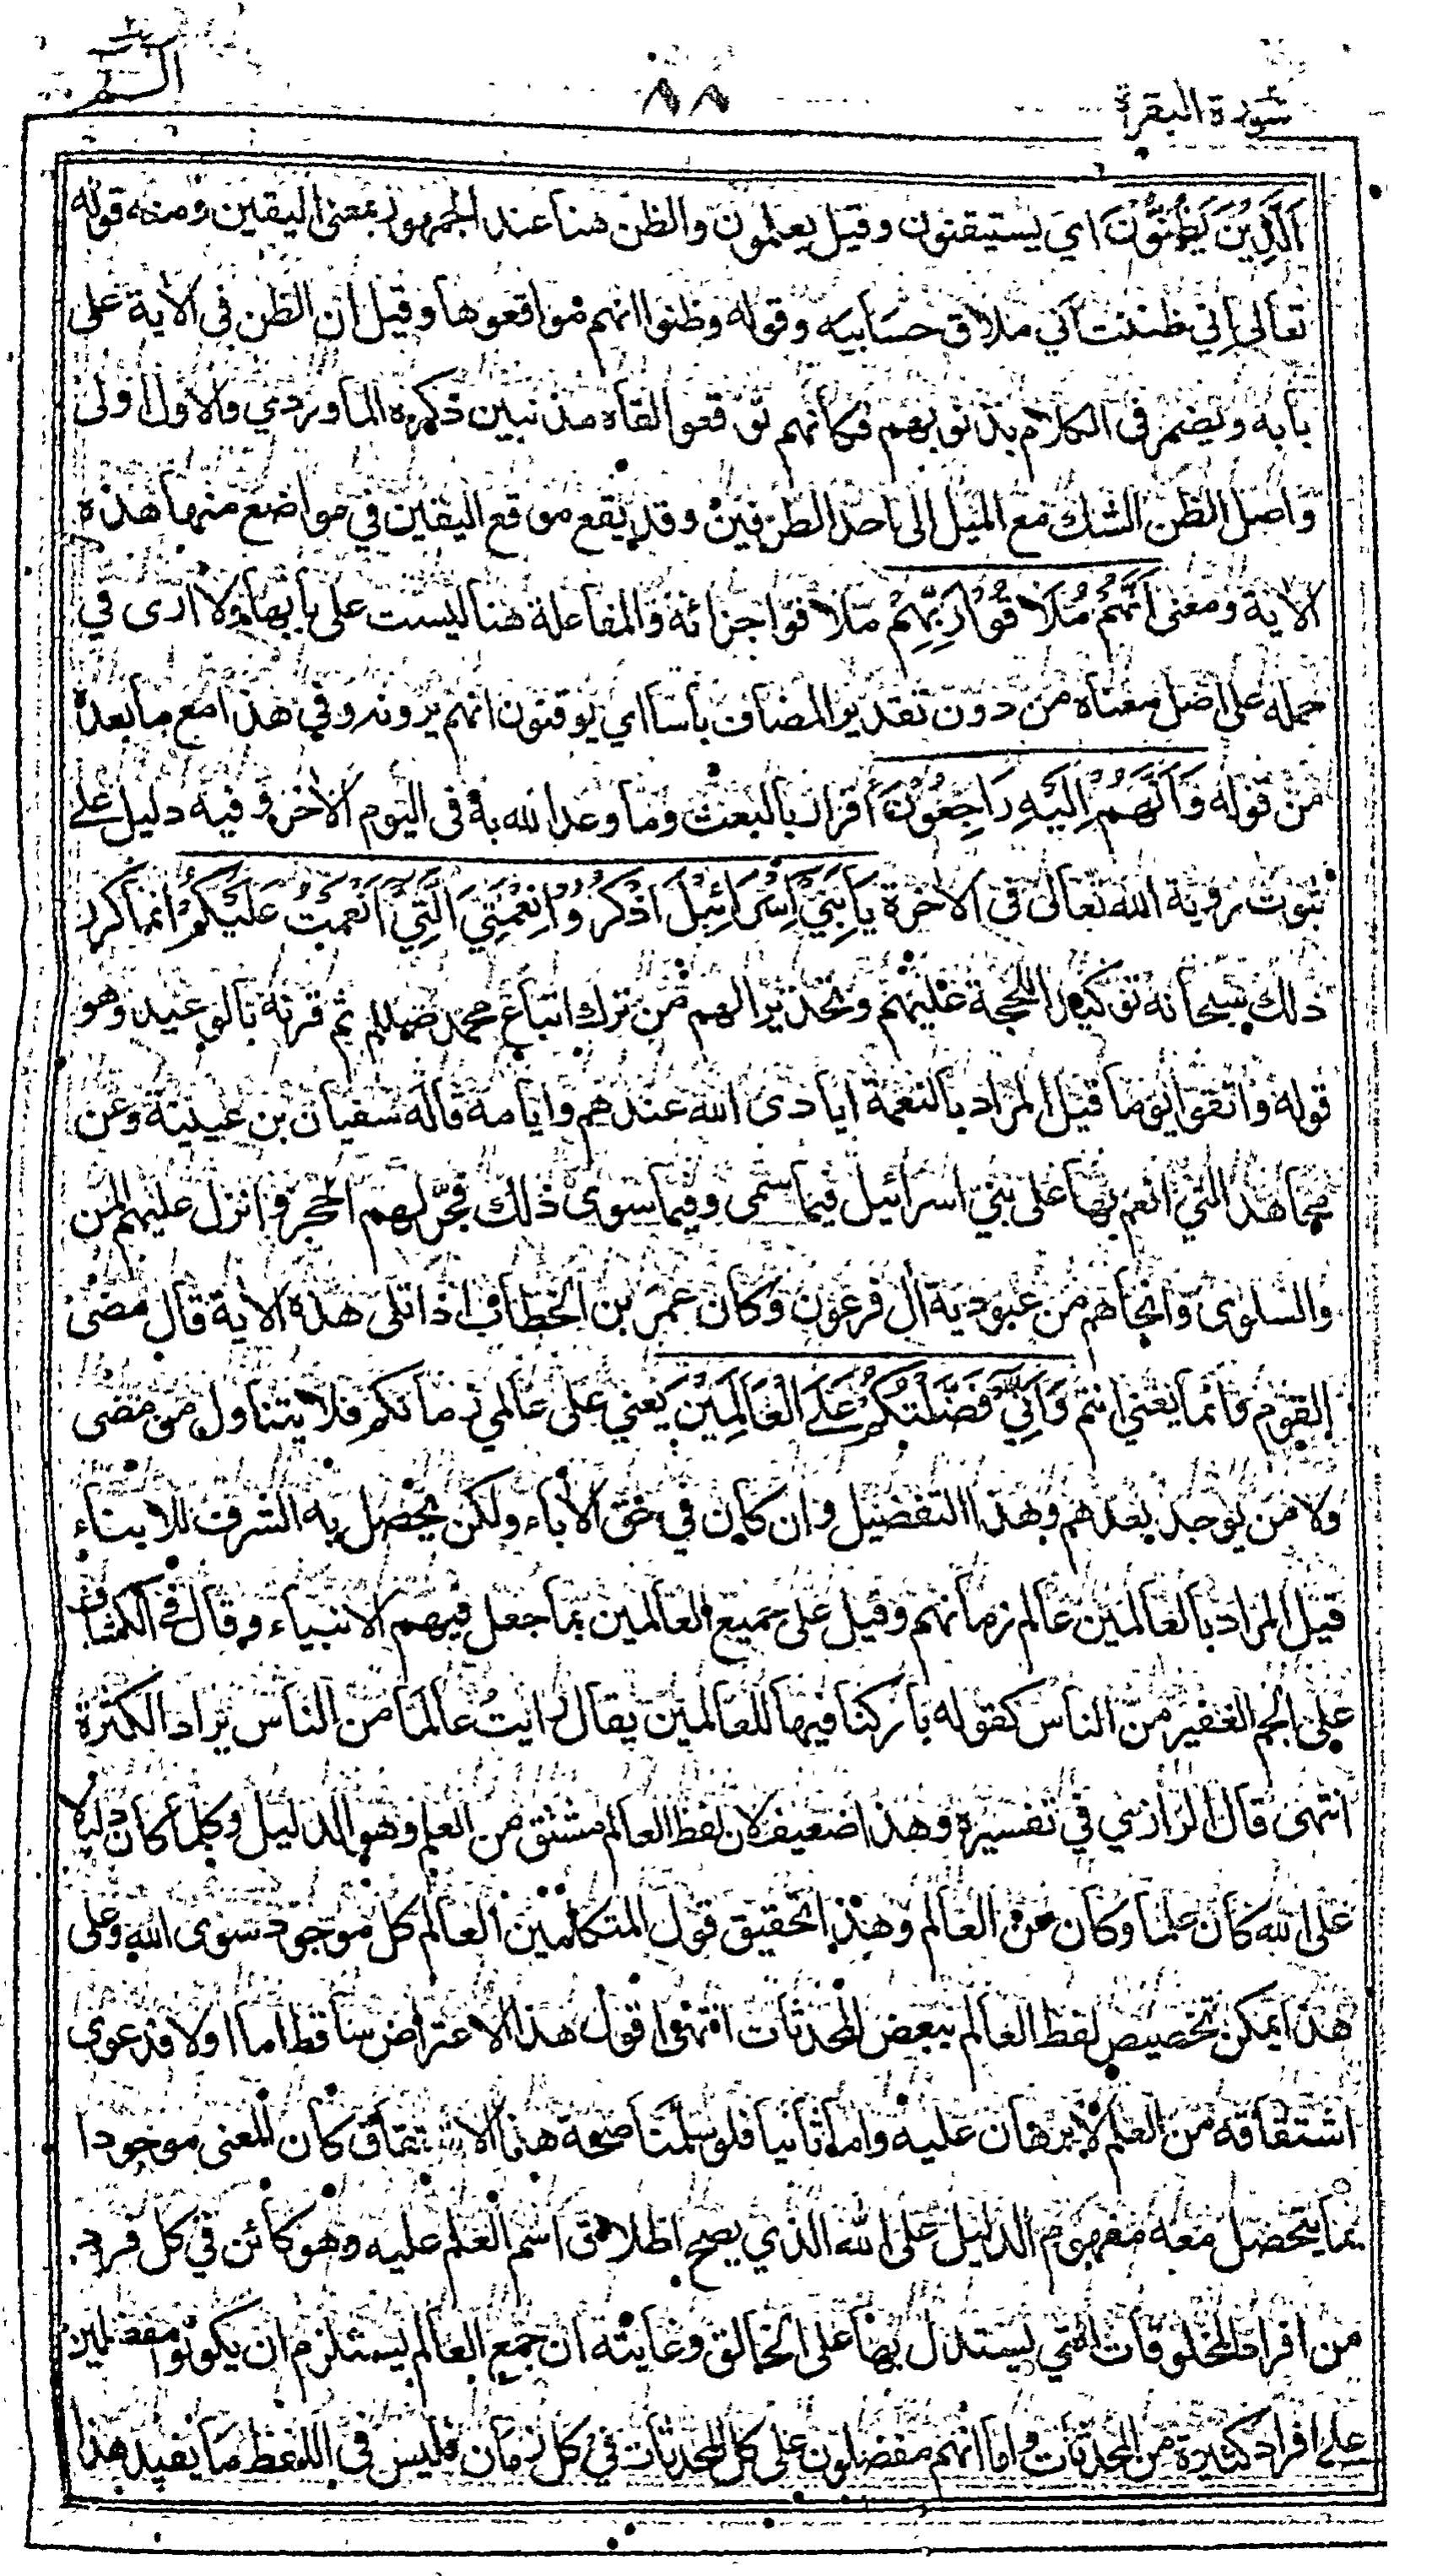 سورة البقرة ٨٨ الم
الَّذِيْنَ يَظُنُّوْنَ اي يستيقنون وقيل يعلمون والظن هنا عند الجمهور بمعنى اليقين ومنه قوله
تعالى اني ظننت اني ملاق حسابيه وقوله وظنوا انهم مواقعوها وقيل ان الظن في الاية على
بابه ويضمر في الكلام بذنوبهم فكأنهم توقعوا لقاءه مذنبين ذكره الماوردي والاول اولى
واصل الظن الشك مع الميل الى احد الطرفين وقد يقع موقع اليقين في مواضع منها هذه
الاية ومعنى اَنَّهُمْ مُلَاقُوْا رَبِّهِمْ ملاقوا جزائه والمفاعلة هنا ليست على بابها ولا ارى في
حمله على اصل معناه من دون تقدير المضاف بأسا اي يوقنون انهم يرونه وفي هذا مع ما بعده
من قوله وَاَنَّهُمْ اِلَيْهِ رَاجِعُوْنَ اقرار بالبعث وما وعد الله به في اليوم الاخر وفيه دليل على
ثبوت روية الله تعالى في الاخرة يَا بَنِيْ اِسْرَائِيْلَ اذْكُرُوْا نِعْمَتِيَ الَّتِيْ اَنْعَمْتُ عَلَيْكُمْ انما كرر
ذلك سبحانه توكيدا للحجة عليهم وتحذيرا لهم من ترك اتباع محمد صللم ثم قرنه بالوعيد وهو
قوله واتقوا يوما قيل المراد بالنعمة ايادى الله عندهم وايامه قاله سفيان بن عيينة وعن
مجاهد التي انعم بها على بني اسرائيل فيما سمى وفيما سوى ذلك فجر لهم الحجر وانزل عليهم المن
والسلوى وانجاهم من عبودية آل فرعون وكان عمر بن الخطاب اذا تلى هذه الاية قال مضى
القوم وانما يعني انتم وَاَنِّيْ فَضَّلْتُكُمْ عَلَى الْعَالَمِيْنَ يعني على عالمي زمانكم فلا يتناول من مضى
ولا من يوجد بعدهم وهذا التفضيل وان كان في حق الآباء ولكن يحصل به الشرف للابناء
قيل المراد بالعالمين عالم زمانهم وقيل على جميع العالمين بما جعل فيهم الانبياء وقال في الكشاف
على الجم الغفير من الناس كقوله باركنا فيها للعالمين يقال رايت عالما من الناس يراد الكثرة
انتهى قال الرازي في تفسيره وهذا ضعيف لان لفظ العالم مشتق من العلم وهو الدليل وكلما كان دليلا
على الله كان علما وكان من العالم وهذا تحقيق قول المتكلمين العالم كل موجود سوى الله وعلى
هذا يمكن تخصيص لفظ العالم ببعض المحدثات انتهى اقول هذا الاعتراض ساقط اما اولا فدعوى
اشتقاقه من العلم لا برهان عليه واما ثانيا فلو سلمنا صحة هذا الاشتقاق كان المعنى موجودا
بما يتحصل معه مفهوم الدليل على الله الذي يصح اطلاق اسم العلم عليه وهو كائن في كل فرد
من افراد المخلوقات التي يستدل بها على الخالق وغايته ان جمع العالم يستلزم ان يكونوا مفضلين
على افراد كثيرة من المحدثات واما انهم مفضلون على كل المحدثات في كل زمان فليس في اللفظ ما يفيد هذا